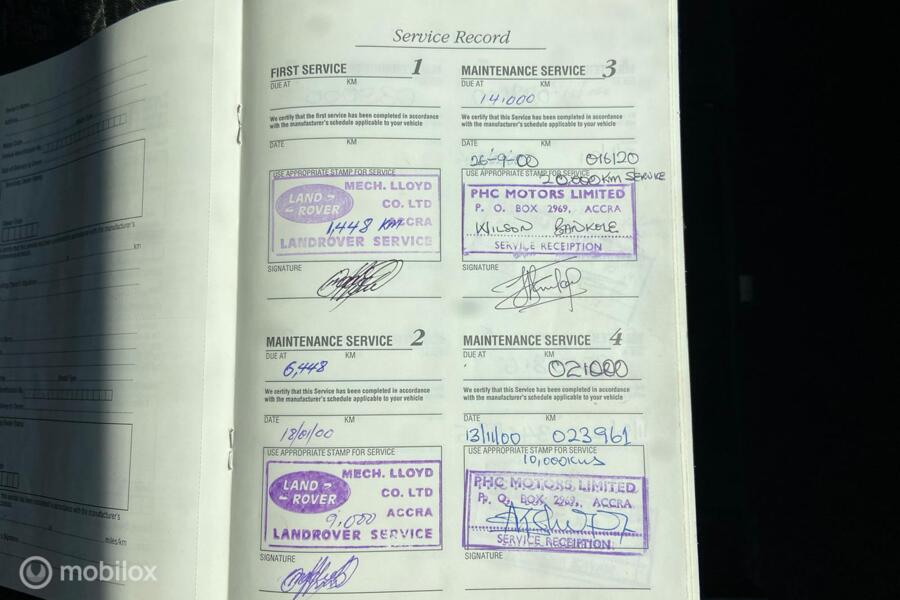 Service Record
FIRST SERVICE 1
DUE AT KM
We certify that the first service has been completed in accordance
with the manufacturer's schedule applicable to your vehicle
DATE KM
USE APPROPRIATE STAMP FOR SERVICE
LAND ROVER
MECH. LLOYD
CO. LTD
ACCRA
1,448 KM
LANDROVER SERVICE
SIGNATURE
MAINTENANCE SERVICE 2
DUE AT KM
6,448
We certify that this Service has been completed in accordance
with the manufacturer's schedule applicable to your vehicle
DATE KM
18/01/00
USE APPROPRIATE STAMP FOR SERVICE
LAND ROVER
MECH. LLOYD
CO. LTD
9.000 ACCRA
LANDROVER SERVICE
SIGNATURE
MAINTENANCE SERVICE 3
DUE AT KM
14.000
We certify that this Service has been completed in accordance
with the manufacturer's schedule applicable to your vehicle
DATE KM
26-9-00 016120
USE APPROPRIATE STAMP FOR SERVICE
20,000KM SERVICE
PHC MOTORS LIMITED
P. O. BOX 2969, ACCRA
WILSON BANKOLE
SERVICE RECEIPTION
SIGNATURE
MAINTENANCE SERVICE 4
DUE AT KM
021000
We certify that this Service has been completed in accordance
with the manufacturer's schedule applicable to your vehicle
DATE KM
13/11/00 023961
USE APPROPRIATE STAMP FOR SERVICE
10,000KMS
PHC MOTORS LIMITED
P. O. BOX 2969, ACCRA
SERVICE RECEIPTION
SIGNATURE
km
miles/km
mobilox